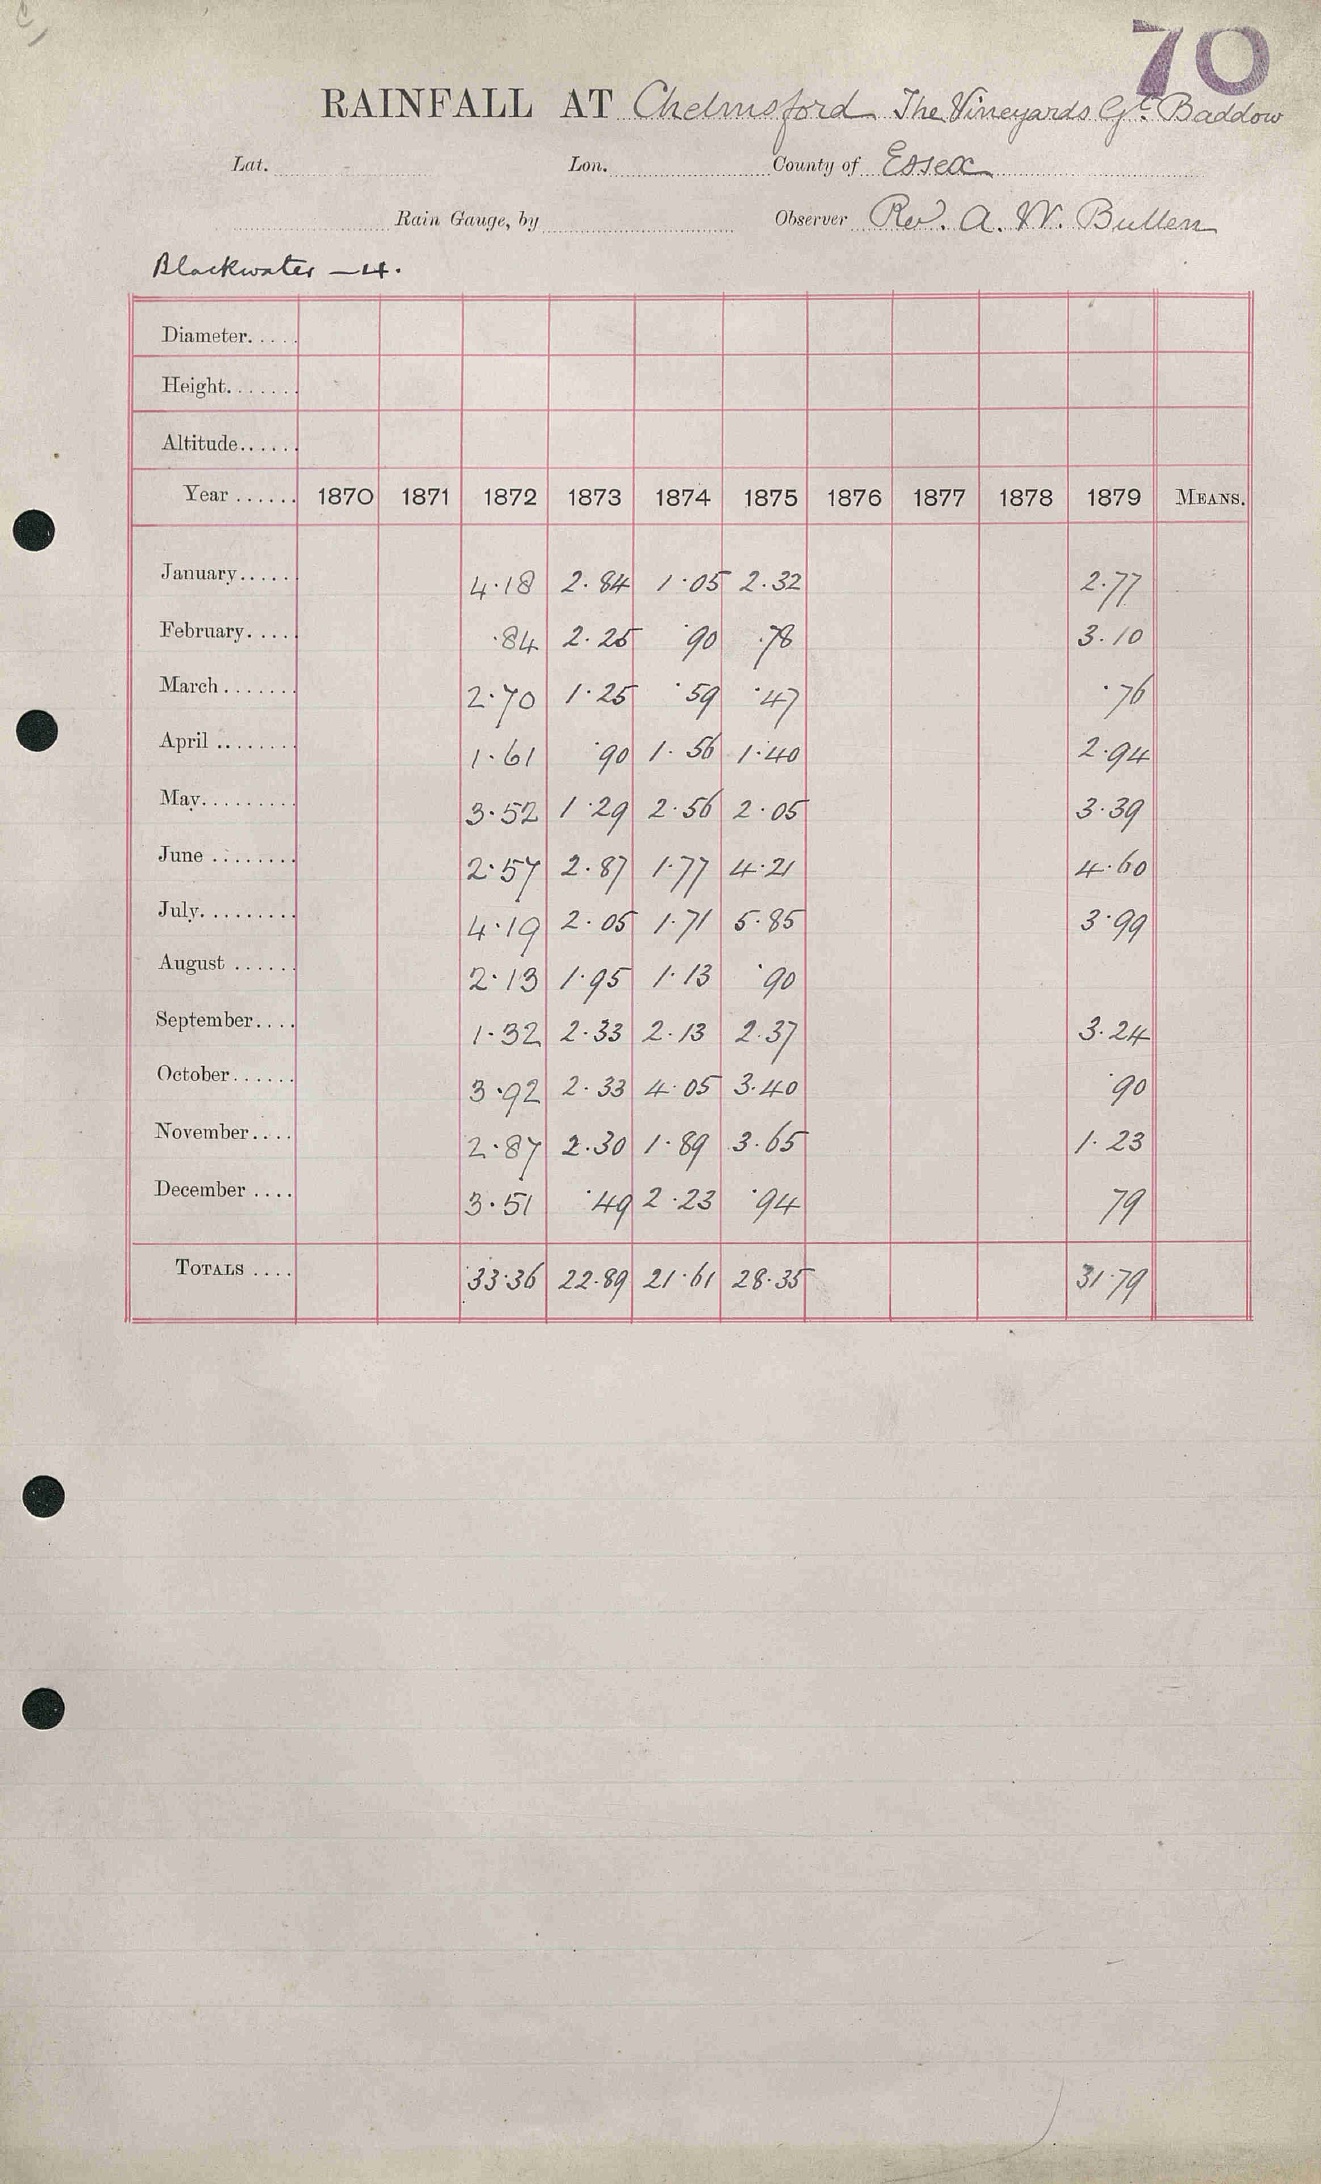 70
RAINFALL AT Chelmsford The Vineyards Gt. Baddow
Lat. Lon. County of Essex
Rain Gauge, by Observer Rev. A. W. Bullen
Blackwater — 4.
Diameter.....
Height.......
Altitude......
Year ...... 1870 1871 1872 1873 1874 1875 1876 1877 1878 1879 MEANS.
January...... 4.18 2.84 1.05 2.32 2.77
February..... .84 2.25 .90 .78 3.10
March....... 2.70 1.25 .59 .47 .76
April ........ 1.61 .90 1.56 1.40 2.94
May......... 3.52 1.29 2.56 2.05 3.39
June ........ 2.57 2.87 1.77 4.21 4.60
July......... 4.19 2.05 1.71 5.85 3.99
August ...... 2.13 1.95 1.13 .90
September.... 1.32 2.33 2.13 2.37 3.24
October...... 3.92 2.33 4.05 3.40 .90
November.... 2.87 2.30 1.89 3.65 1.23
December .... 3.51 .49 2.23 .94 79
TOTALS .... 33.36 22.89 21.61 28.35 31.79